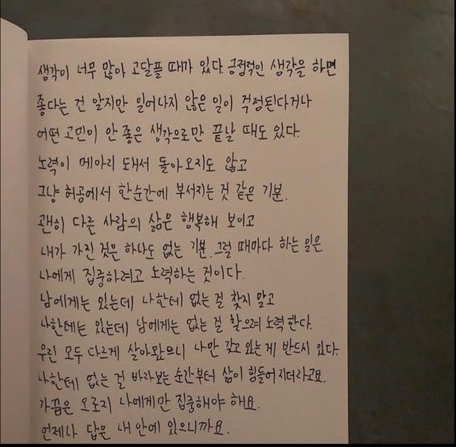 생각이 너무 많아 고달플 때가 있다. 긍정적인 생각을 하면
좋다는 건 알지만 일어나지 않은 일이 걱정된다거나
어떤 고민이 안 좋은 생각으로만 끝날 때도 있다.
노력이 메아리 돼서 돌아오지도 않고
그냥 허공에서 한순간에 부서지는 것 같은 기분.
괜히 다른 사람의 삶은 행복해 보이고
내가 가진 것은 하나도 없는 기분. 그럴 때마다 하는 일은
나에게 집중하려고 노력하는 것이다.
남에게는 있는데 나한테 없는 걸 찾지 말고
나한테는 있는데 남에게는 없는 걸 찾으려 노력한다.
우린 모두 다르게 살아왔으니 나만 갖고 있는 게 반드시 있다.
나한테 없는 걸 바라보는 순간부터 삶이 힘들어지더라고요.
가끔은 오로지 나에게만 집중해야 해요.
언제나 답은 내 안에 있으니까요.